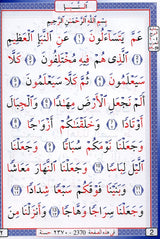 النبإ
بِسْمِ اللَّهِ الرَّحْمَٰنِ الرَّحِيمِ
عَمَّ يَتَسَاءَلُونَ ۝ عَنِ النَّبَإِ الْعَظِيمِ
۝ الَّذِي هُمْ فِيهِ مُخْتَلِفُونَ ۝ كَلَّا
سَيَعْلَمُونَ ۝ ثُمَّ كَلَّا سَيَعْلَمُونَ ۝
أَلَمْ نَجْعَلِ الْأَرْضَ مِهَادًا ۝ وَالْجِبَالَ
أَوْتَادًا ۝ وَخَلَقْنَاكُمْ أَزْوَاجًا ۝
وَجَعَلْنَا نَوْمَكُمْ سُبَاتًا ۝ وَجَعَلْنَا
اللَّيْلَ لِبَاسًا ۝ وَجَعَلْنَا النَّهَارَ مَعَاشًا
۝ وَبَنَيْنَا فَوْقَكُمْ سَبْعًا شِدَادًا ۝
وَجَعَلْنَا سِرَاجًا وَهَّاجًا ۝
2 في هذه الصفحة 2370 - ٢٣٧٠ حسنة ٢